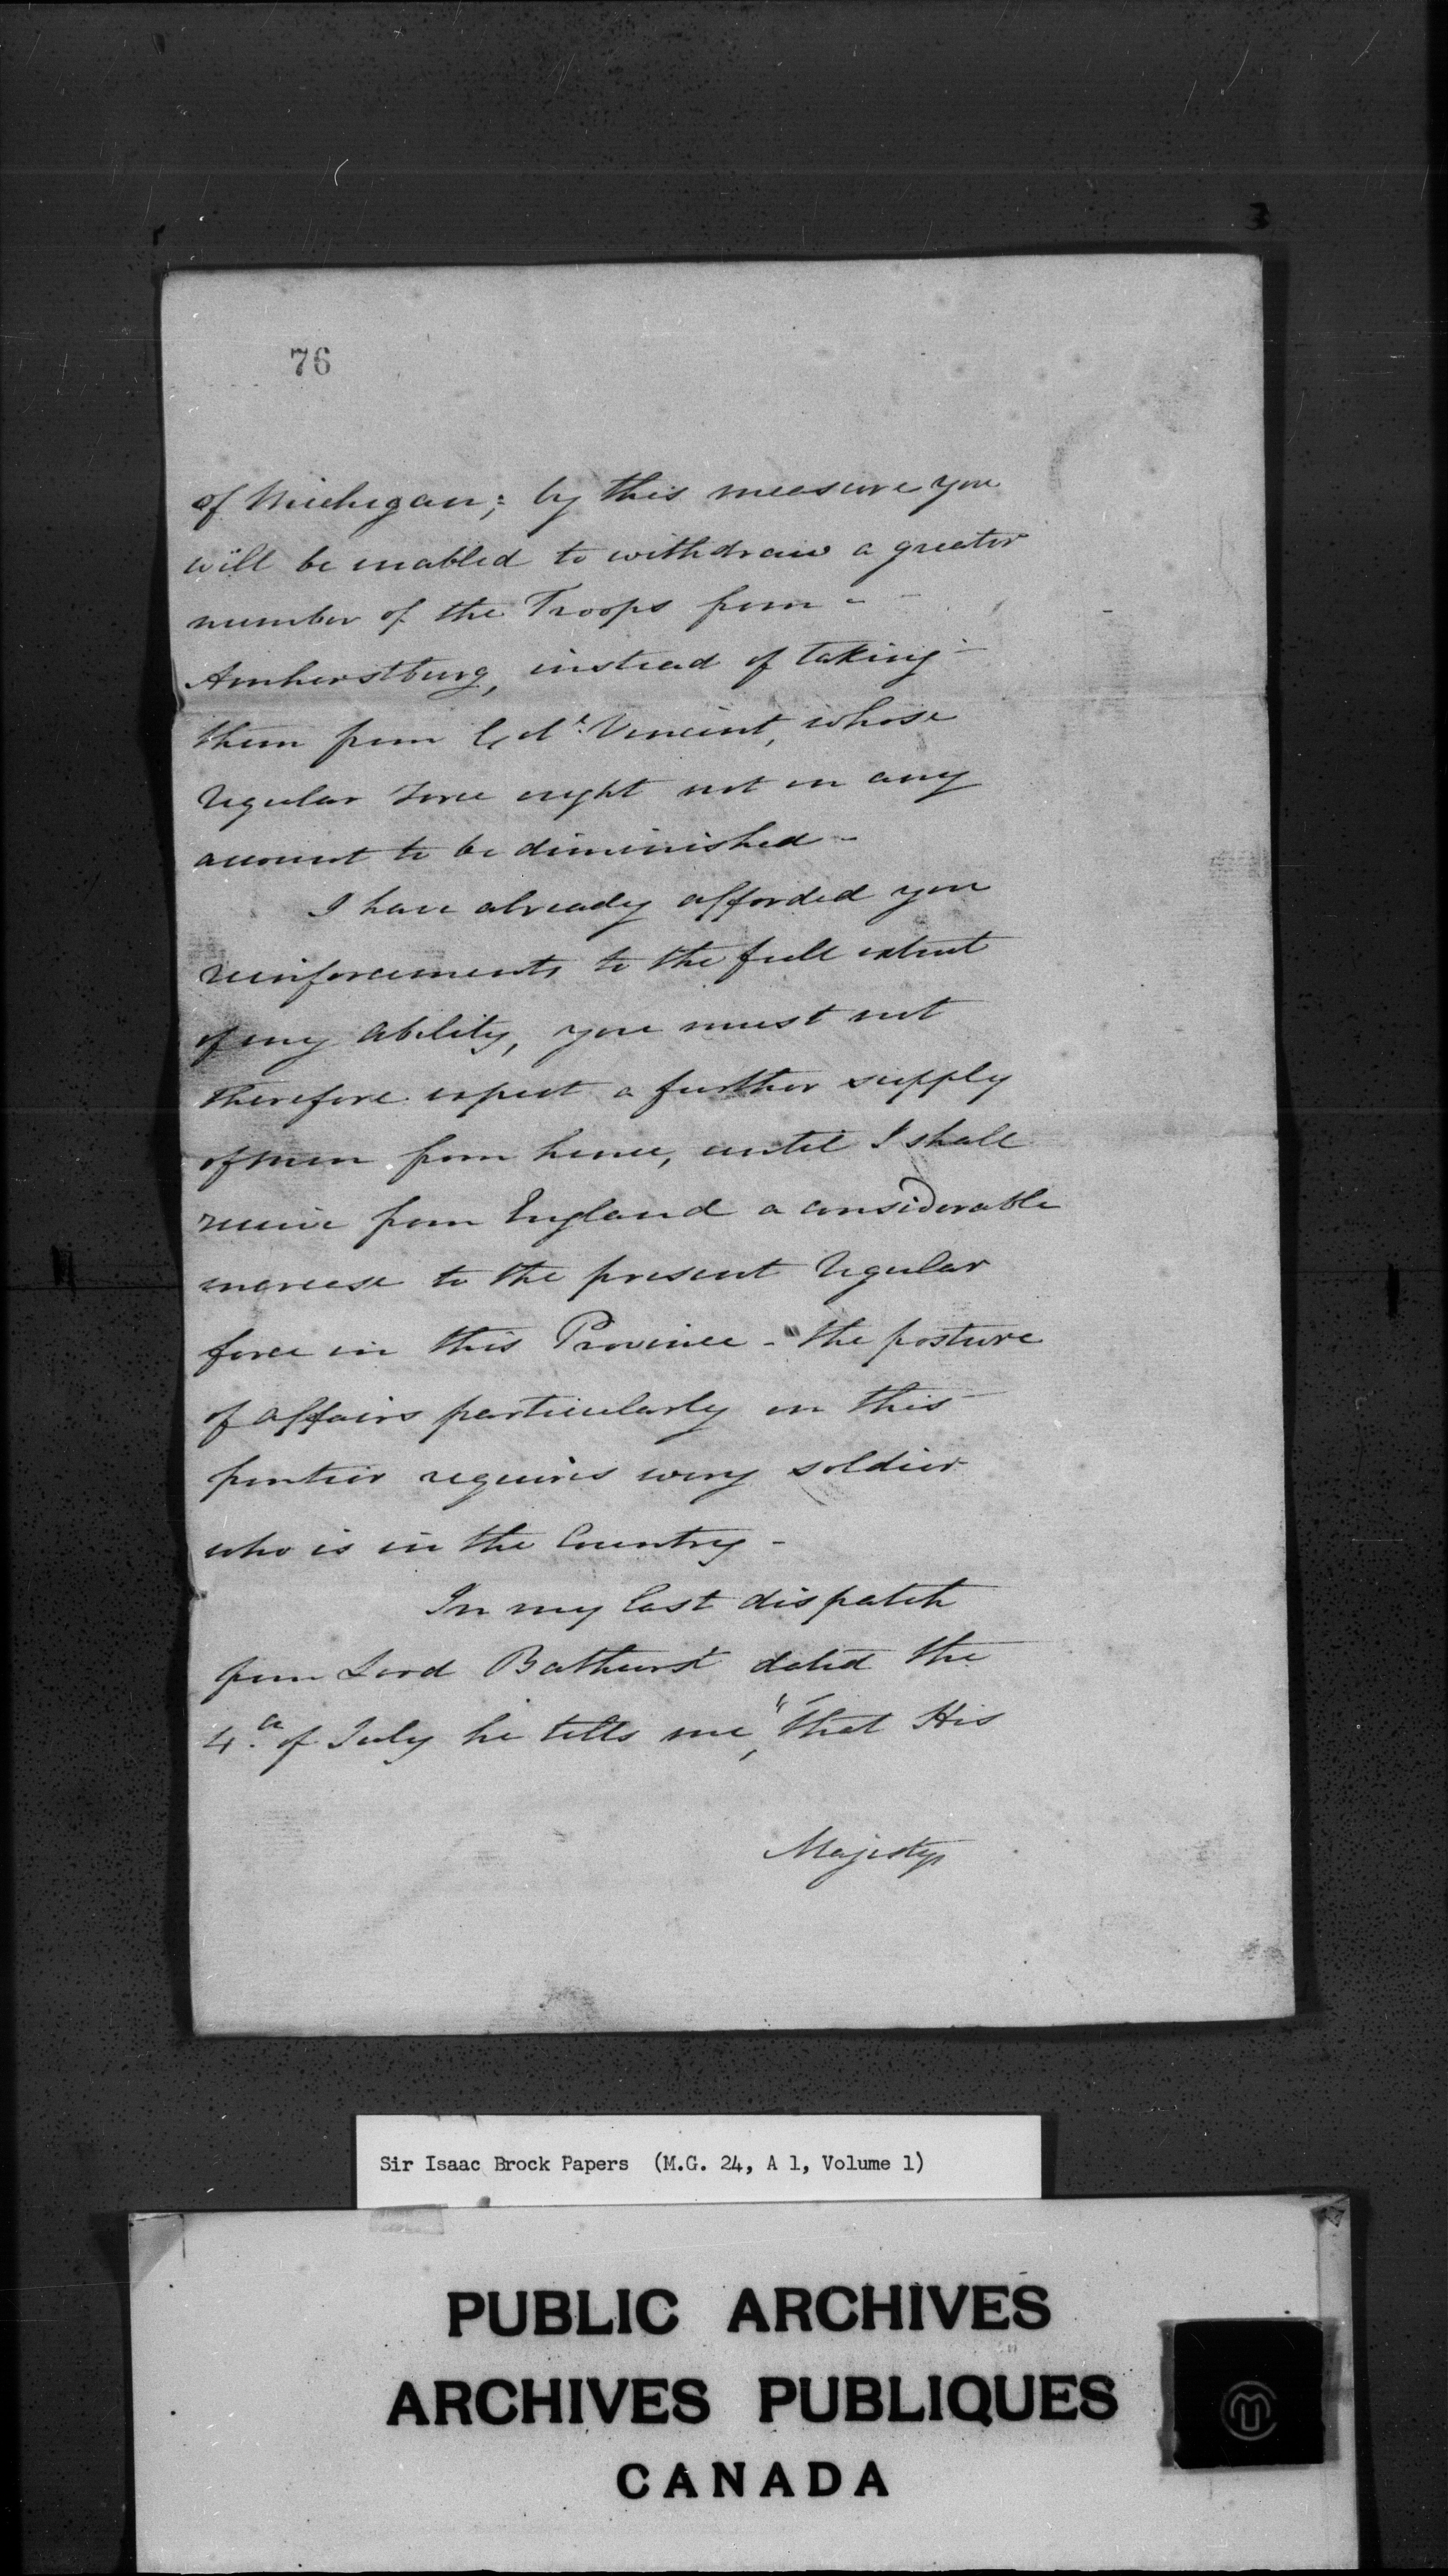 76
of Michigan; by this measure you
will be enabled to withdraw a greater
number of the Troops from -
Amherstburg, instead of taking
them from Col. Vincent, whose
regular Force ought not on any
account to be diminished -
I have already afforded you
reinforcements to the full extent
of my ability, you must not
therefore expect a further supply
of men from hence, until I shall
receive from England a considerable
increase to the present regular
force in this Province - the posture
of affairs particularly on this
frontier requires every soldier
who is in the Country -
In my last dispatch
from Lord Bathurst dated the
4th of July he tells me, "that His
Majestys
Sir Isaac Brock Papers (M.G. 24, A 1, Volume 1)
PUBLIC ARCHIVES
ARCHIVES PUBLIQUES
CANADA